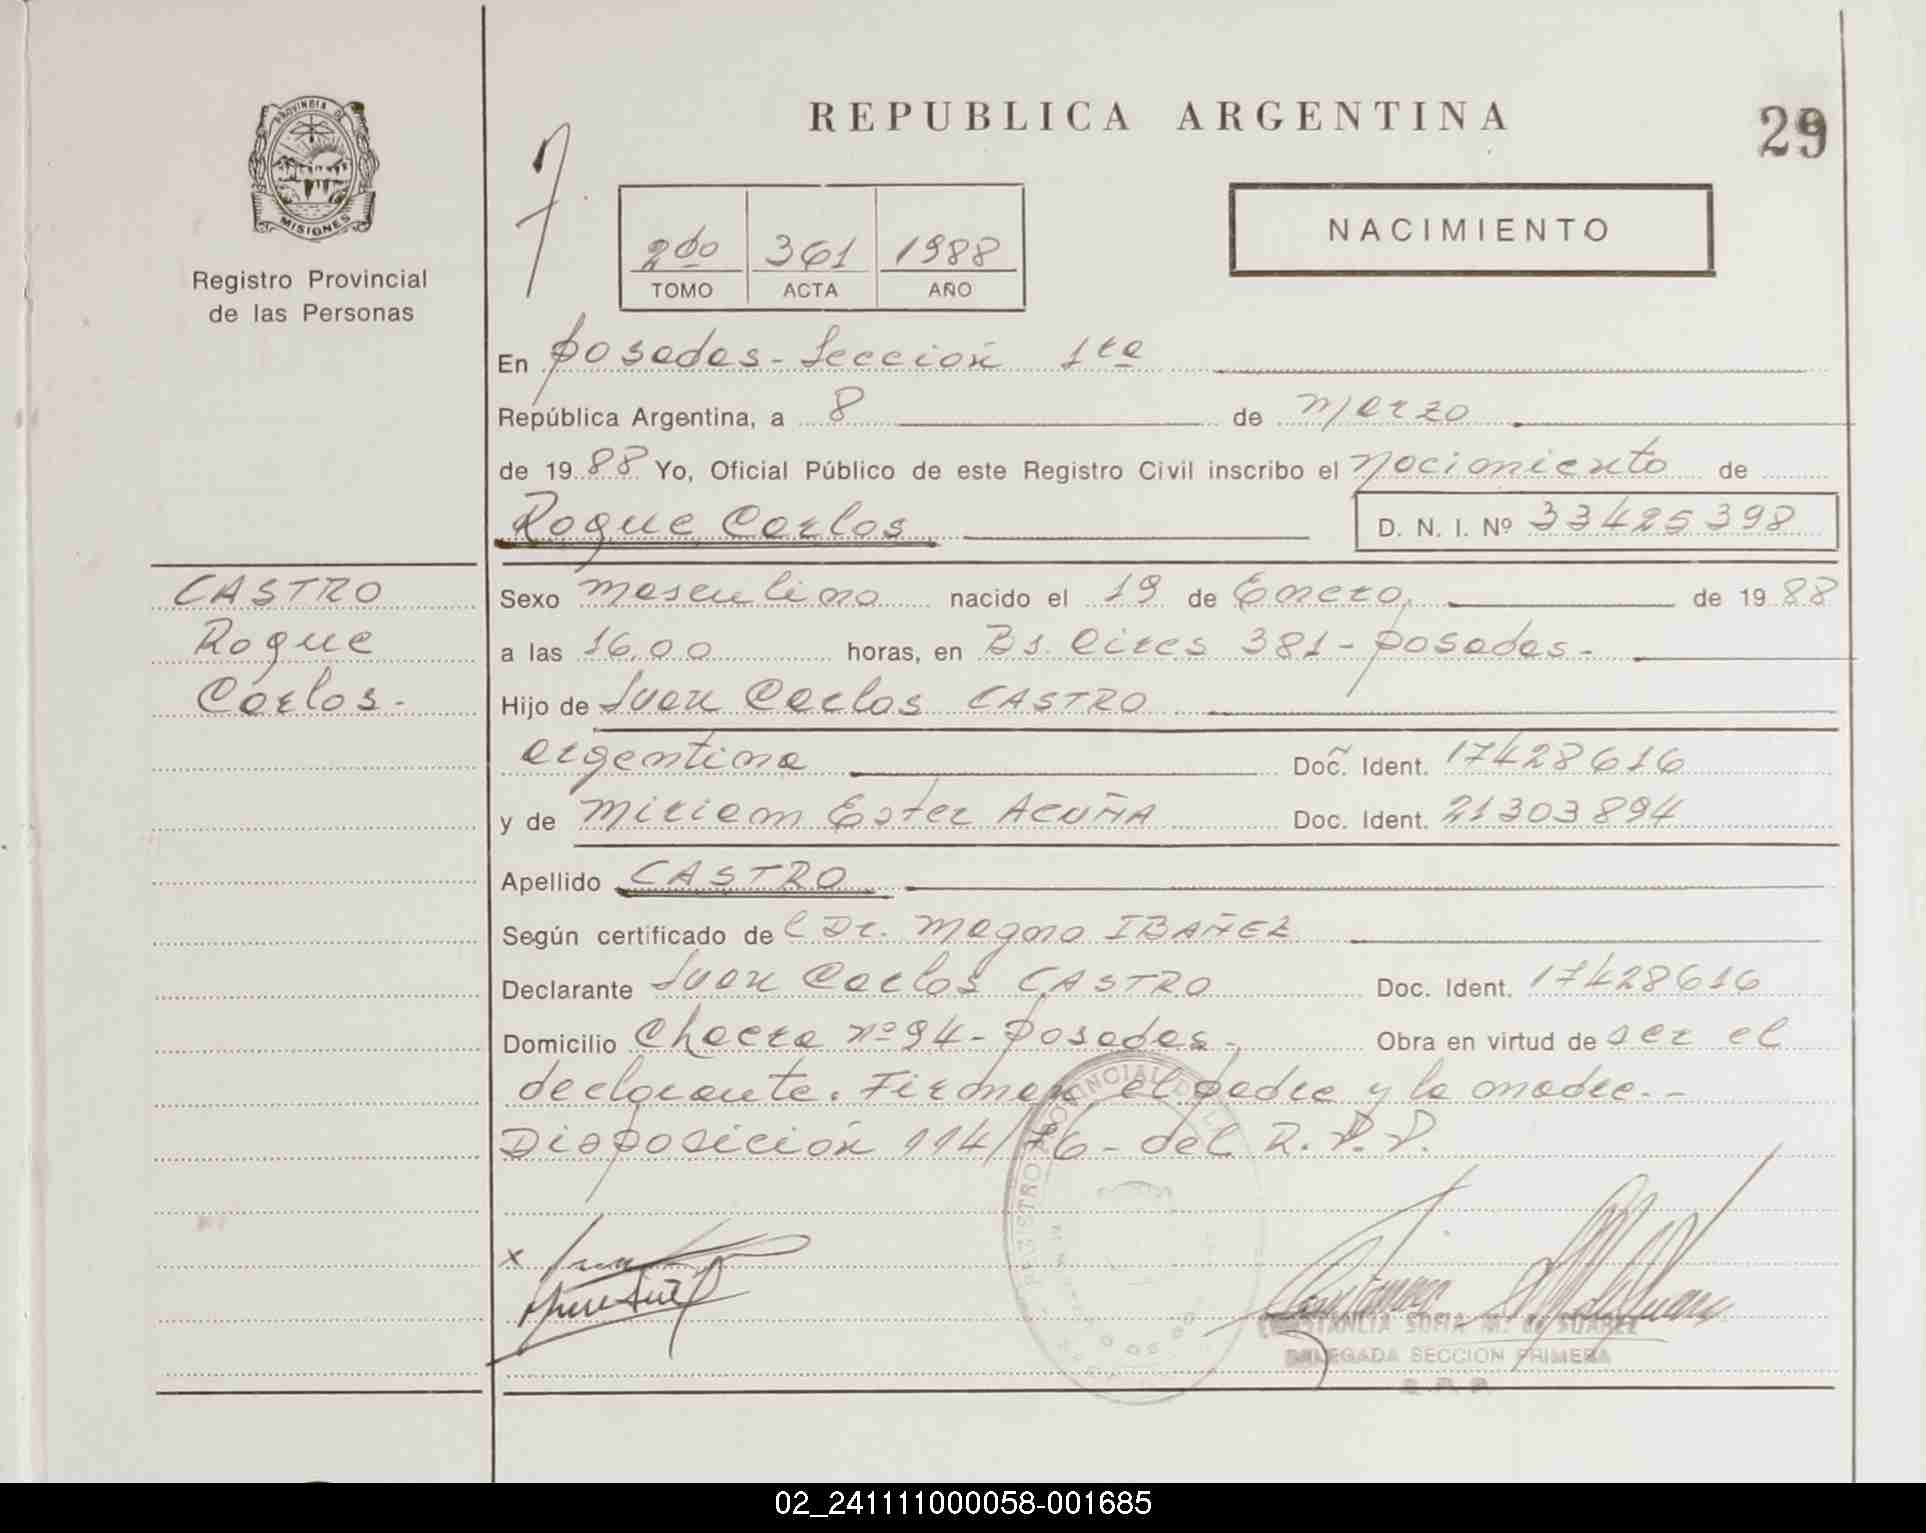 REPUBLICA ARGENTINA
29
PROVINCIA DE
MISIONES
Registro Provincial
de las Personas
7
2do 361 1988
TOMO ACTA AÑO
NACIMIENTO
En Posadas - Sección 1ra
República Argentina, a 8 de Marzo
de 19 88 Yo, Oficial Público de este Registro Civil inscribo el nacimiento de
Roque Carlos D. N. I. Nº 33425398
CASTRO
Roque
Carlos.-
Sexo masculino nacido el 19 de Enero, de 19 88
a las 16,00 horas, en Bs. Aires 381 - Posadas.-
Hijo de Juan Carlos CASTRO
argentina Doc. Ident. 17428616
y de Miriam Ester ACUÑA Doc. Ident. 21303894
Apellido CASTRO
Según certificado de l Dr. Magno IBAÑEZ
Declarante Juan Carlos CASTRO Doc. Ident. 17428616
Domicilio Chacra nº 94 - Posadas.- Obra en virtud de ser el
declarante. Firman el padre y la madre.--
Disposición 114/76 - del R. P. P.
REGISTRO PROVINCIAL DE L
x
CONSTANCIA SOFIA M. de SUAREZ
DELEGADA SECCION PRIMERA
R. P. P.
02_241111000058-001685